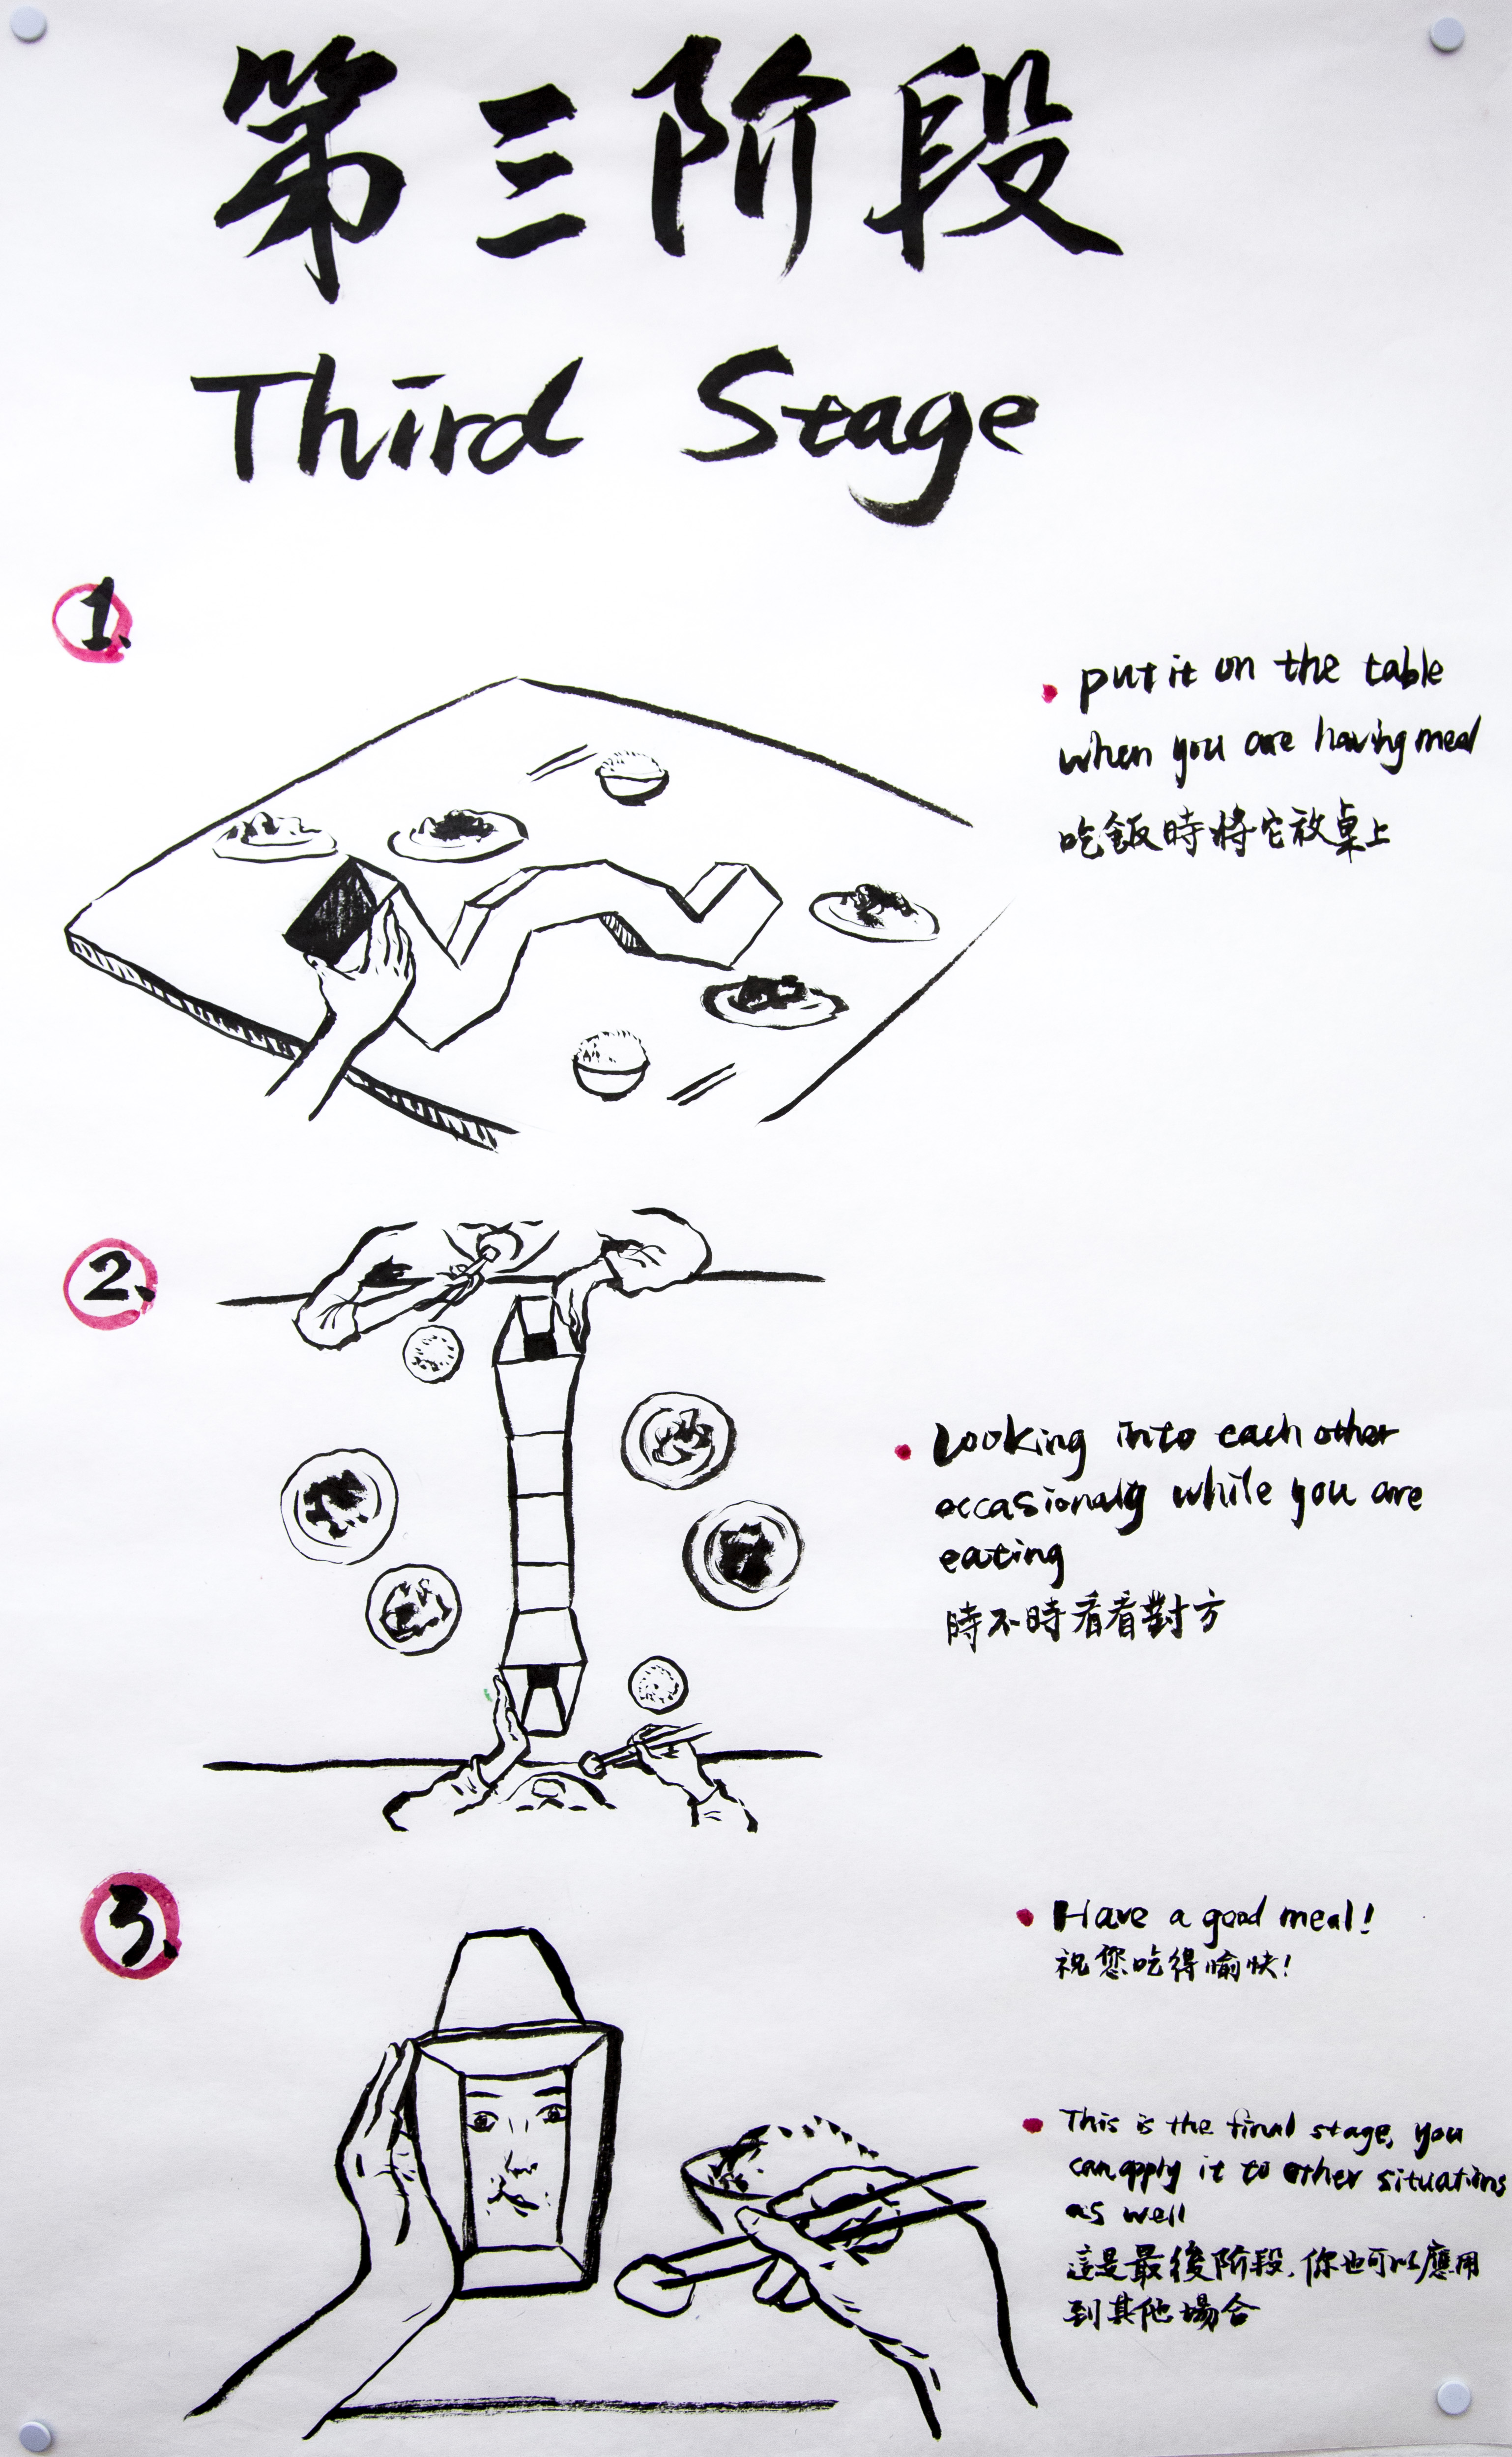 第三阶段
Third Stage
1.
• put it on the table
when you are having meal
吃飯時將它放桌上
2.
• Looking into each other
occasionaly while you are
eating
時不時看看對方
3.
• Have a good meal!
祝您吃得愉快!
• This is the final stage, you
can apply it to other situations
as well
這是最後阶段,你也可以應用
到其他場合